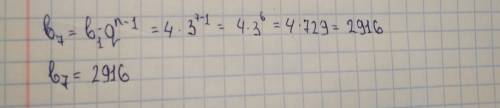 b₇ = b₁·qⁿ⁻¹ = 4 · 3⁷⁻¹ = 4 · 3⁶ = 4 · 729 = 2916
b₇ = 2916